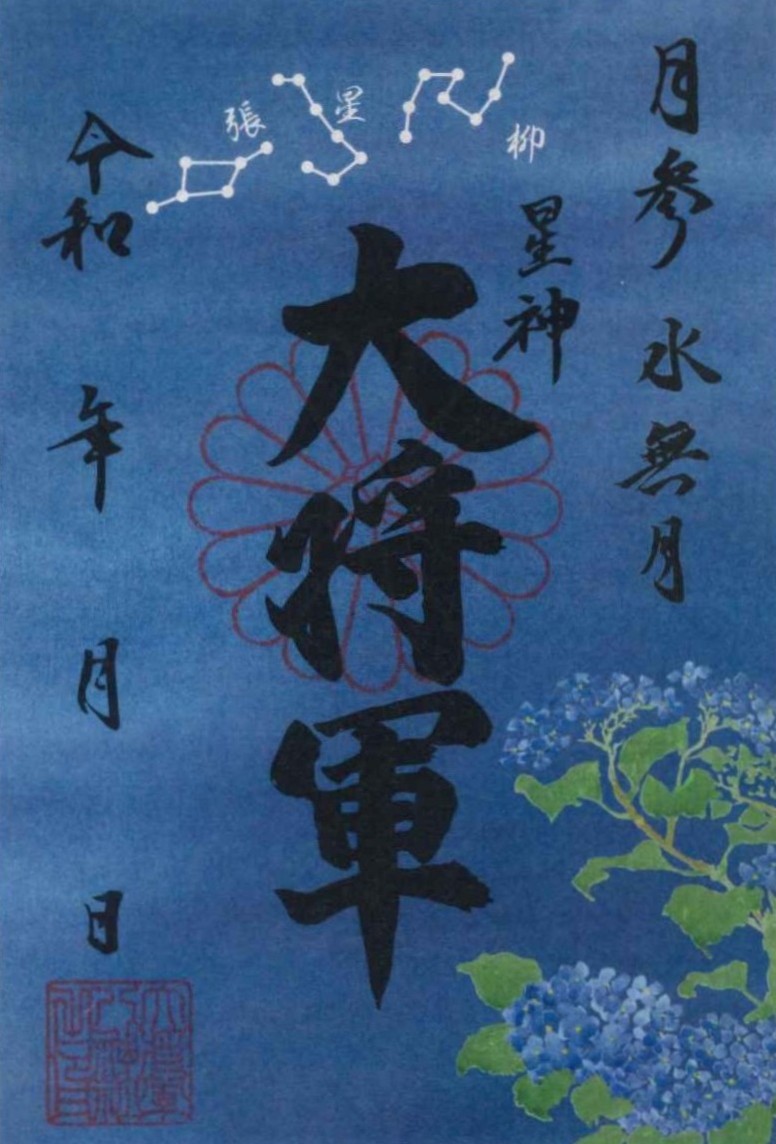 月参 水無月
星神
大将軍
柳
星
張
令和 年 月 日